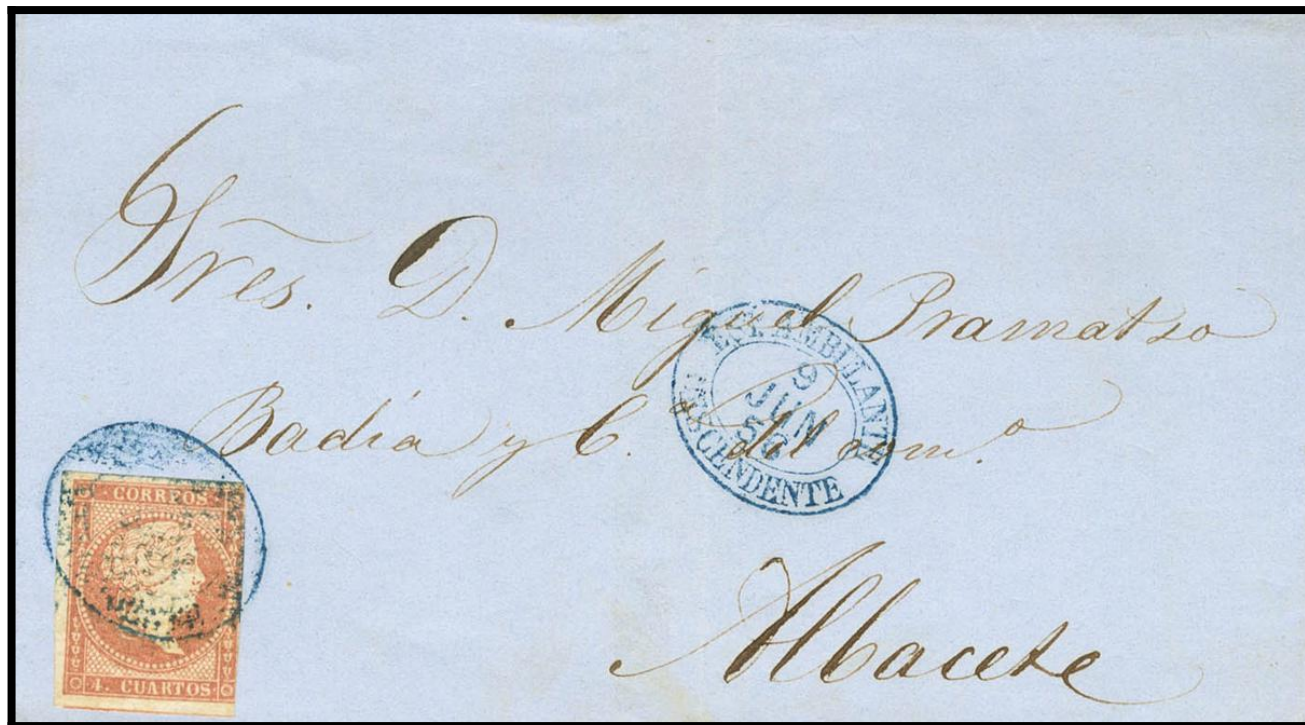 Sres. D. Miguel Pramatso
Badía y C. del com.º
Albacete
EST. AMBULANTE
9
JUN
DESCENDENTE
CORREOS
4. CUARTOS